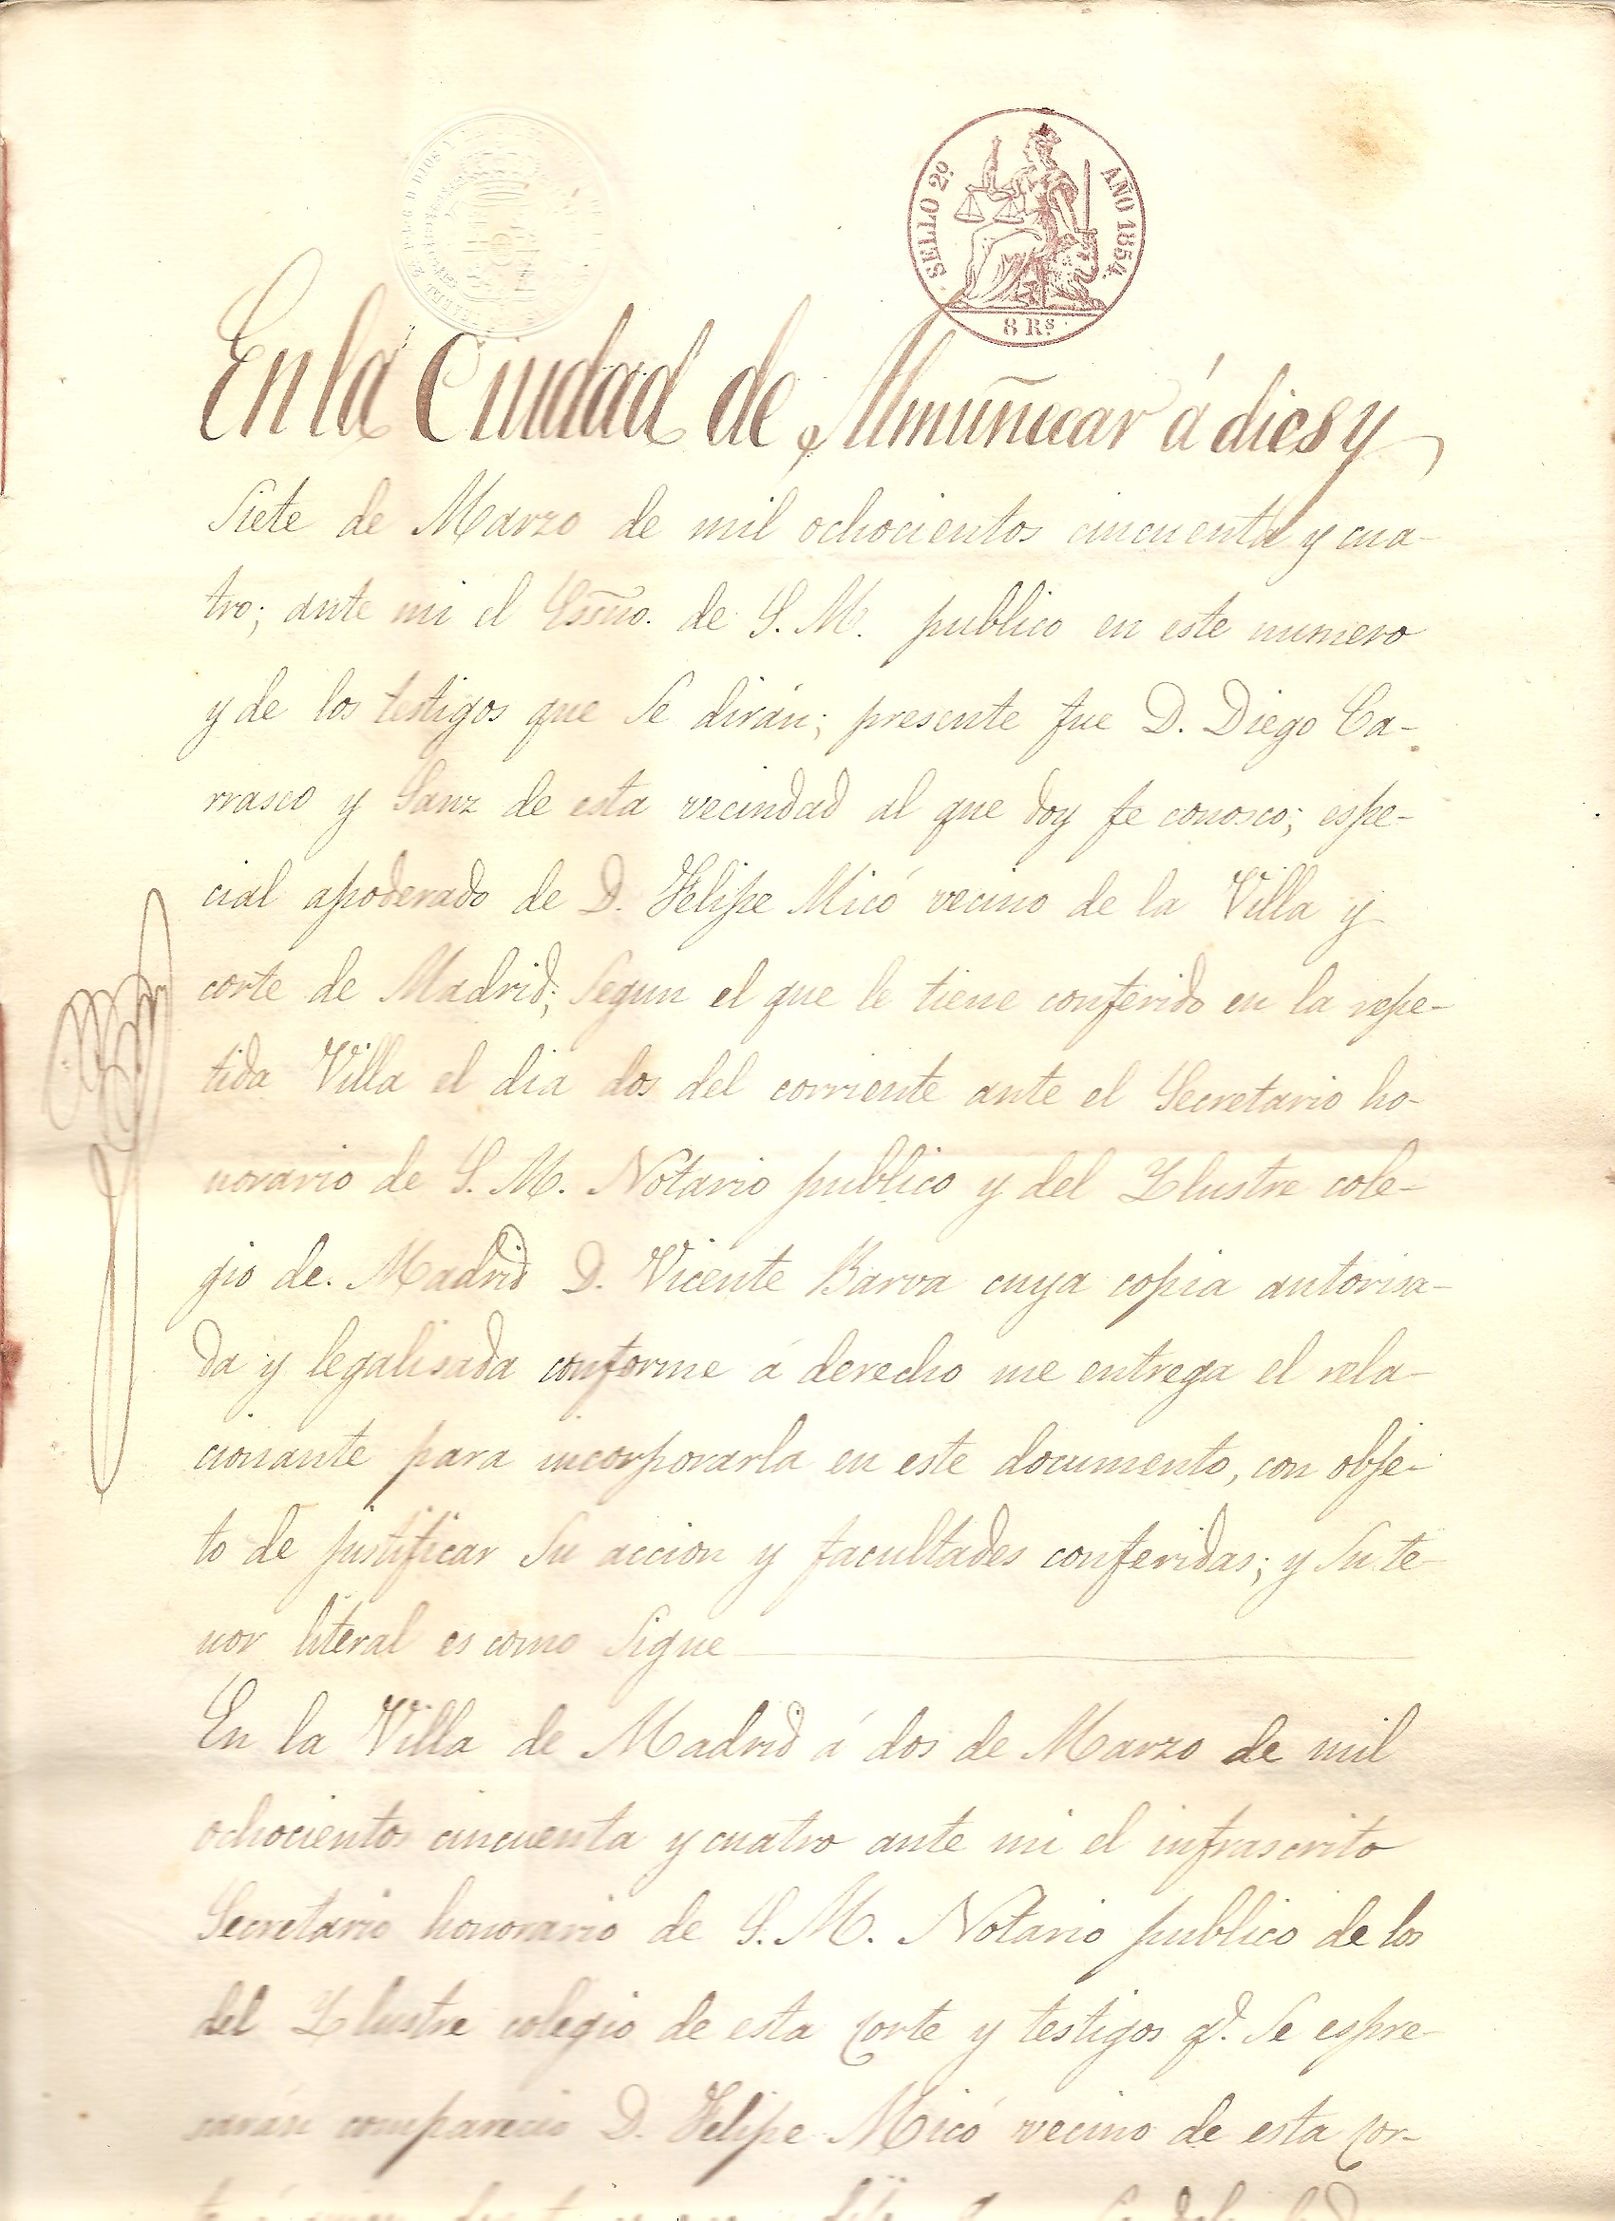 SELLO 2º. AÑO 1854.
8 Rs.
En la Ciudad de Almuñecar á dies y
Siete de Marzo de mil ochocientos cincuenta y cua-
tro; ante mi el Essño. de S. M. publico en este numero
y de los testigos que Se dirán; presente fue D. Diego Ca-
rrasco y Sanz de esta vecindad al que doy fe conosco; espe-
cial apoderado de D. Felipe Micó vecino de la Villa y
corte de Madrid; Segun el que le tiene conferido en la repe-
tida Villa el dia dos del corriente ante el Secretario ho-
norario de S. M. Notario publico y del Ylustre cole-
gio de. Madrid D. Vicente Barva cuya copia autorisa-
da y legalisada conforme á derecho me entrega el rela-
cionante para incorporarla en este documento, con obje-
to de justificar Su accion y facultades conferidas; y Su te-
nor literal es como Sigue
En la Villa de Madrid á dos de Marzo de mil
ochocientos cincuenta y cuatro ante mi el infrascrito
Secretario honorario de S. M. Notario publico de los
del Ylustre colegio de esta corte y testigos q. Se espre-
sarán comparecio D. Felipe Micó vecino de esta cor-